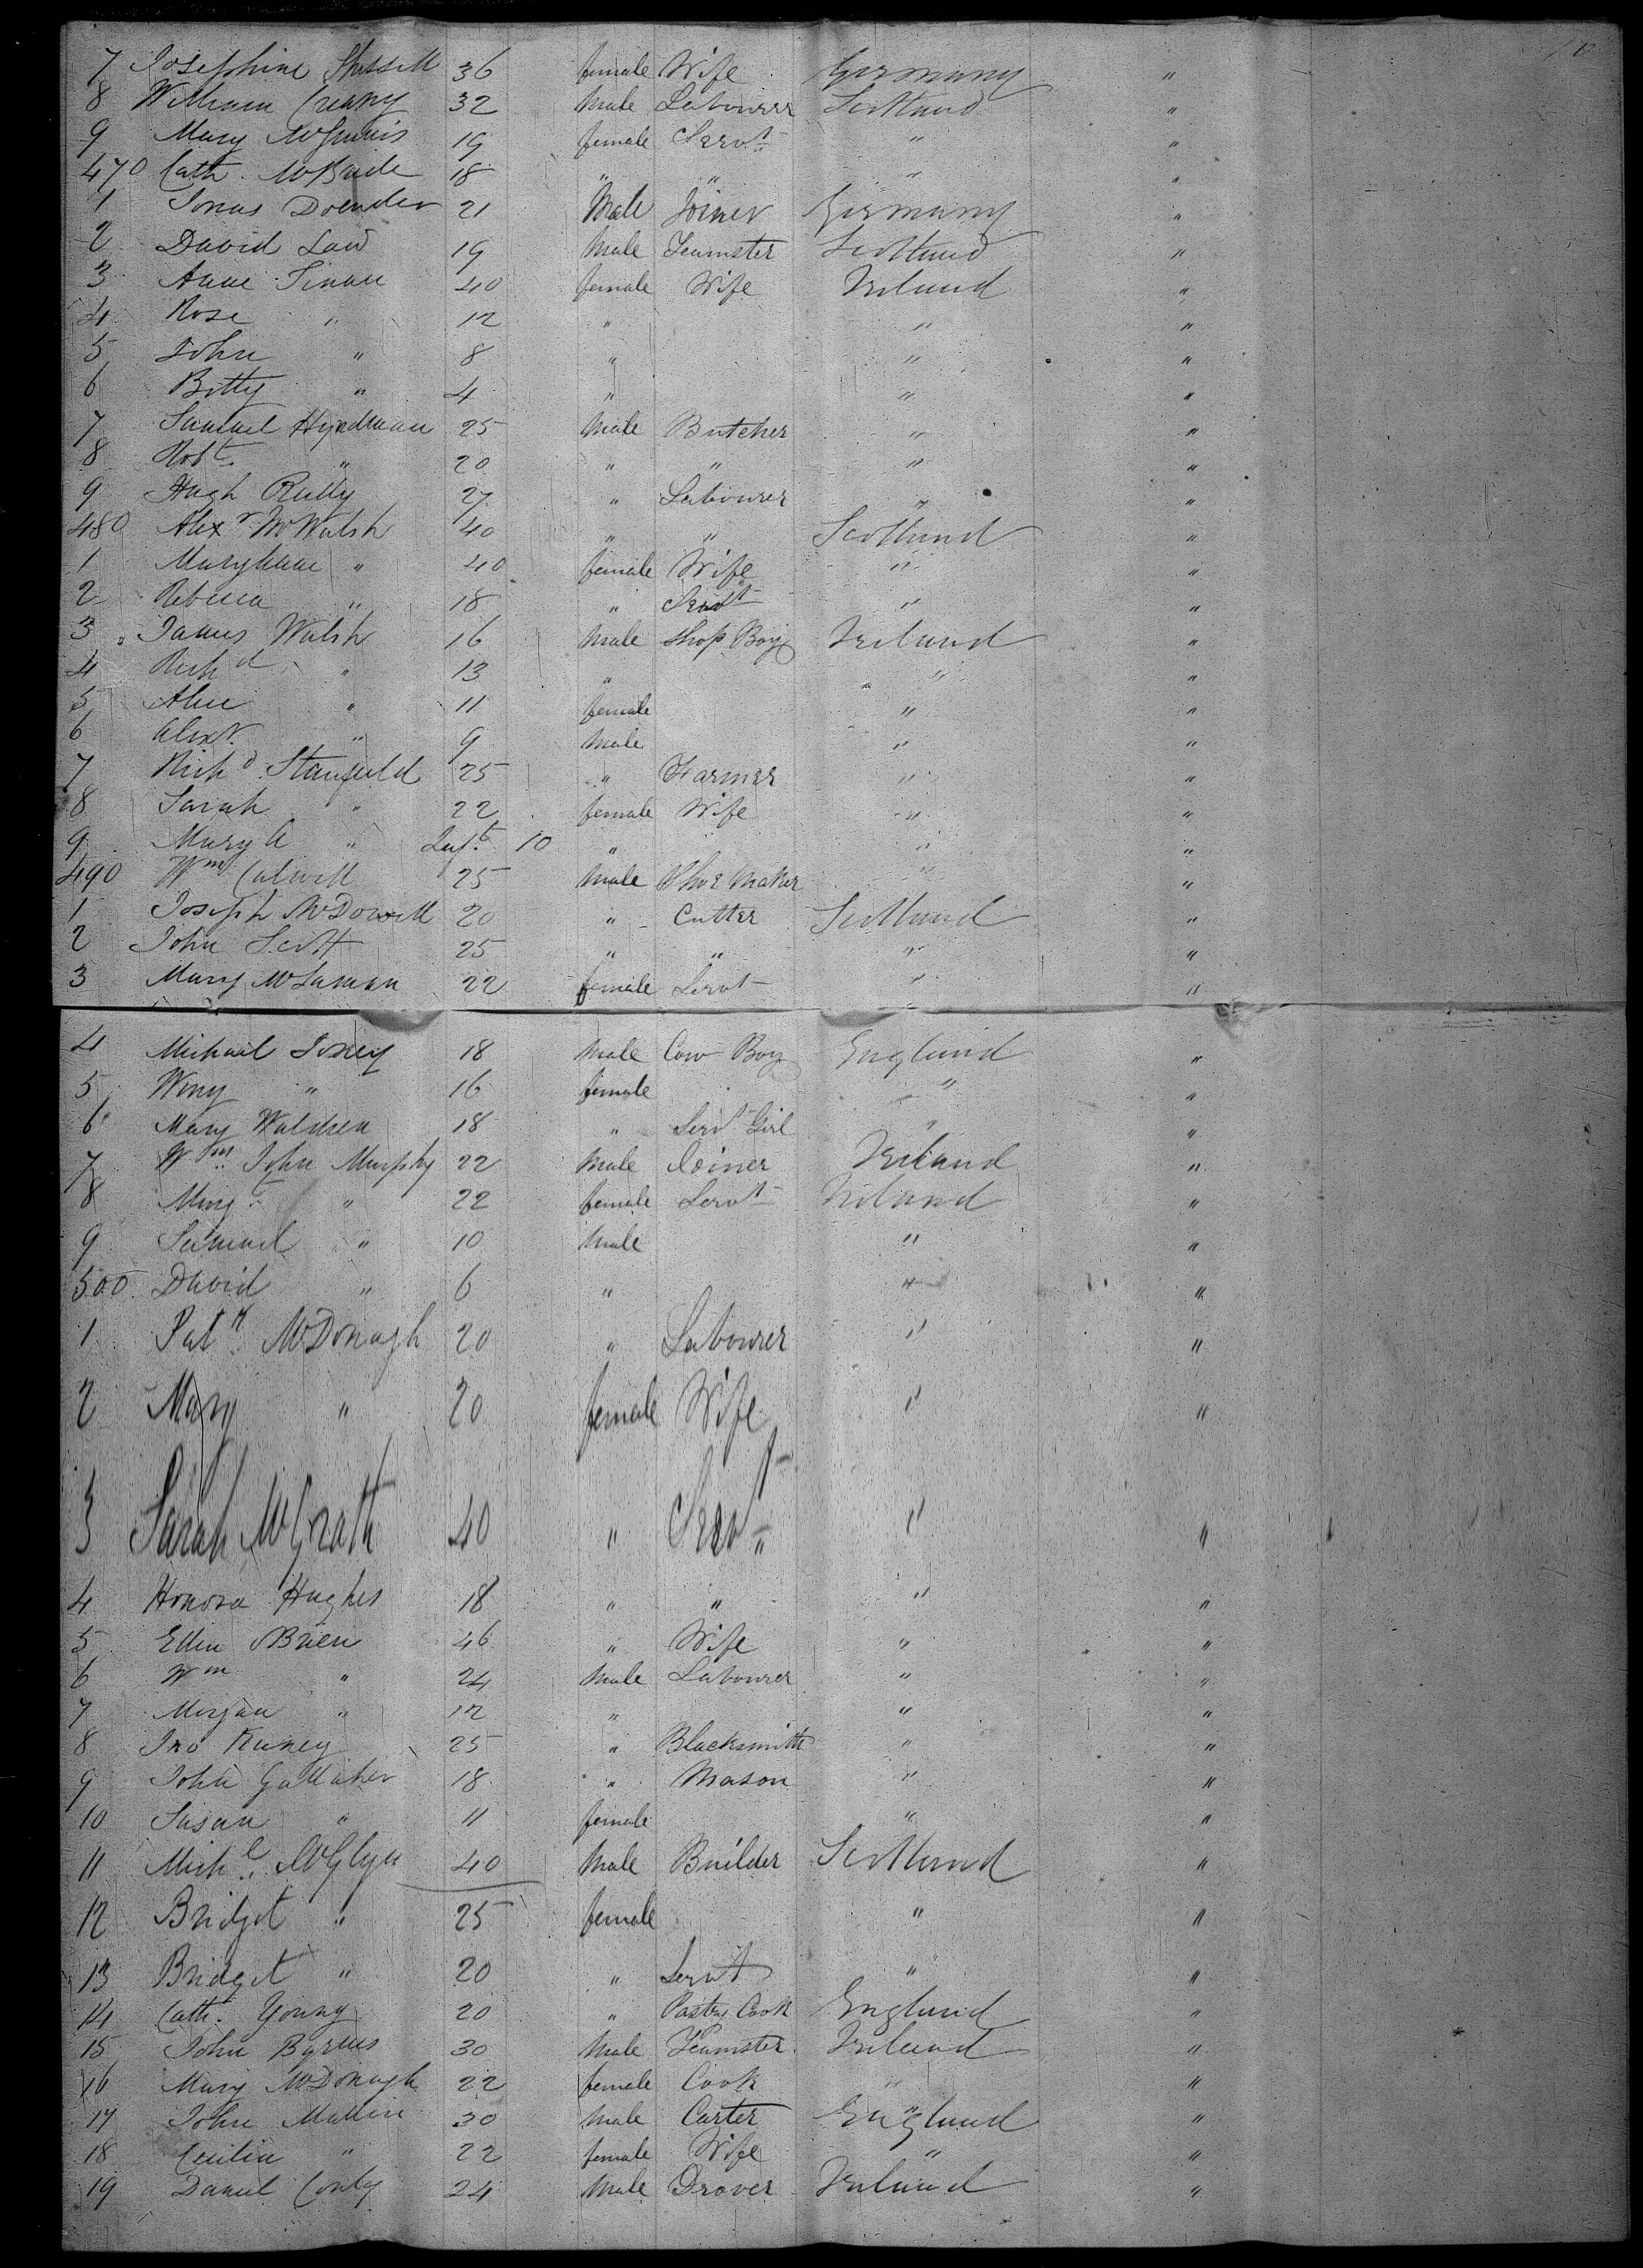 7 Josephine 36 female Wife Germany "
8 William Creany 32 Male Labourer Scotland "
9 Mary McGinnis 19 female Servt " "
470 Cath. McBride 18 " " " "
1 Jonas Doender 21 Male Joiner Germany "
2 David Law 19 Male Teamster Scotland "
3 Anne Finan 40 female Wife Ireland "
4 Rose " 12 " " "
5 John " 8 " " "
6 Betty " 4 " " "
7 Samuel Hyndman 25 Male Butcher " "
8 Robt. " 20 " " " "
9 Hugh Reilly 27 " Labourer " "
480 Alexr McWalsh 40 " " Scotland "
1 Mary Anne " 40 female Wife " "
2 Rebecca " 18 " Servt " "
3 James Walsh 16 Male Shop Boy Ireland "
4 Richd " 13 " " "
5 Alice " 11 female " "
6 Alexr. " 9 Male " "
7 Richd. Stanfield 25 " Farmer " "
8 Sarah " 22 female Wife " "
9 Mary A " Inft 10 " " "
490 Wm Calwell 25 Male Shoe Maker " "
1 Joseph McDowell 20 " Cutter Scotland "
2 John Scott 25 " " " "
3 Mary 22 female Servt " "
4 Michael 18 Male Cow Boy England "
5 Winy " 16 female " "
6 Mary Waldren 18 " Servt Girl " "
7 Wm. John Murphy 22 Male Joiner Ireland "
8 Margt " 22 female Servt Ireland "
9 Samuel " 10 Male " "
500 David " 6 " " "
1 Patk. McDonagh 20 " Labourer " "
2 Mary " 20 female Wife " "
3 Sarah McGrath 40 " Servt " "
4 Honora Hughes 18 " " " "
5 Ellen OBrien 46 " Wife " "
6 Wm " 24 Male Labourer " "
7 Morgan " 12 " " "
8 Jno 25 " Blacksmith " "
9 John Gallaher 18 " Mason " "
10 Susan " 11 female " "
11 Michl. McGlyn 40 Male Builder Scotland "
12 Bridget " 25 female " "
13 Bridget " 20 " Servt " "
14 Cath. Young 20 " Pastry Cook England "
15 John Byrnes 30 Male Teamster Ireland "
16 Mary McDonagh 22 female Cook " "
17 John Mullin 30 Male Carter England "
18 Cecilia " 22 female Wife " "
19 Daniel Conly 24 Male Drover Ireland "